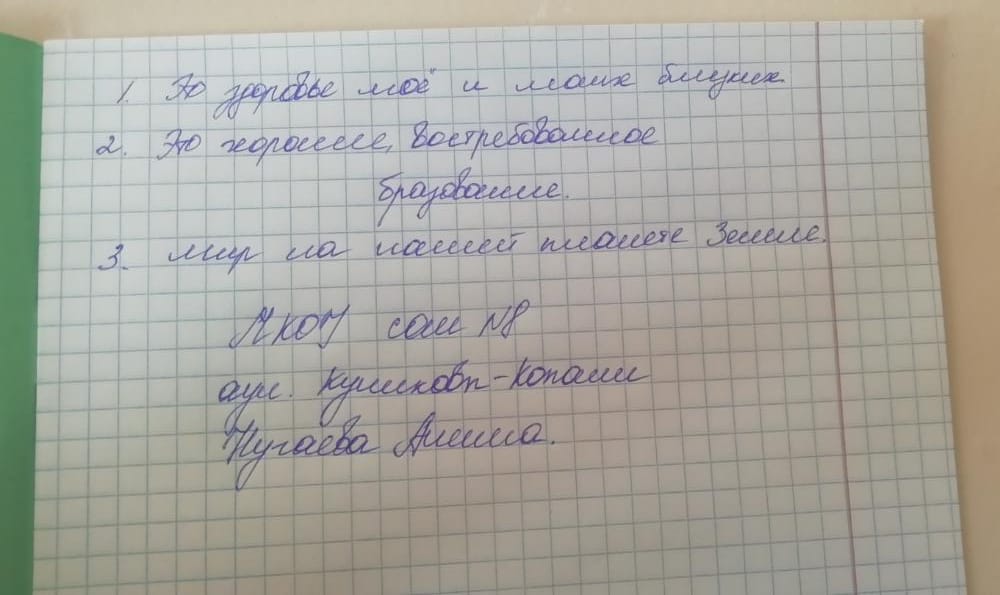 1. Это здоровье моё и моих близких.
2. Это хорошее, востребованное
бразование.
3. Мир на нашей планете Земле.
МКОУ сош №8
аул. Куликовы-Копани
Пугаева Амина.